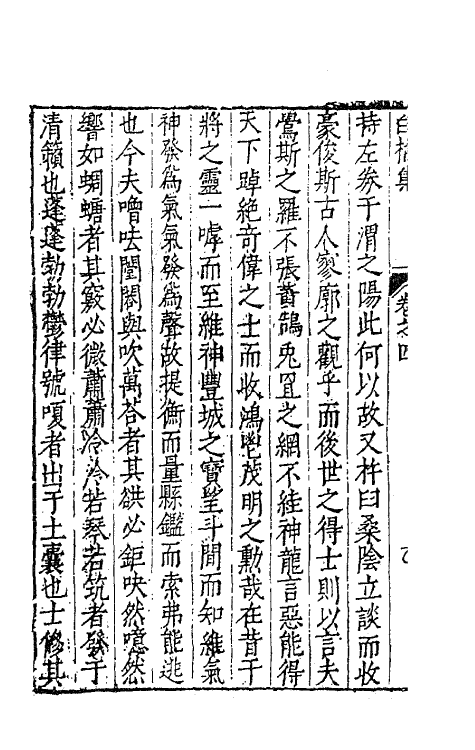 白榆集
卷之四
持左券于渭之陽此何以故又杵臼桑陰立談而收
豪俊斯古人寥廓之觀乎而後世之得士則以言夫
鷽斯之羅不張蒼鵠兔罝之網不絓神龍言惡能得
天下踔絶奇偉之士而收鴻鬯茂明之勳哉在昔干
將之靈一嘑而至維神豐城之寶望斗間而知維氣
神發爲氣氣發爲聲故提衡而量縣鑑而索弗能逃
也今夫噌呿閶闔與吹萬荅者其谼必鉅吷然噫然
響如蜩螗者其竅必微蕭蕭泠泠若琴若筑者發于
清籟也蓬蓬勃勃鬱律號嗄者出于土囊也士修其